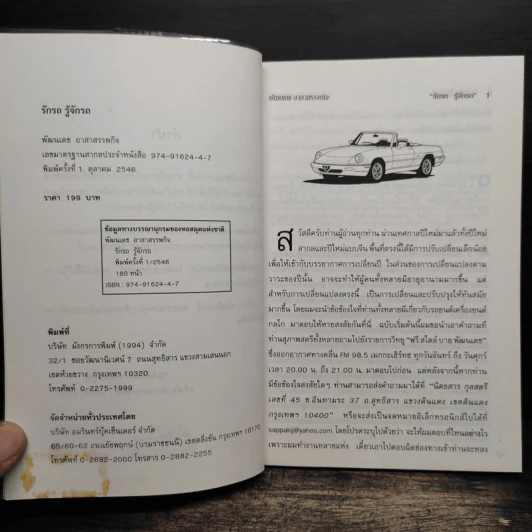 รักรถ รู้จักรถ
พัฒนเดช อาสาสรรพกิจ
เลขมาตรฐานสากลประจำหนังสือ 974-91624-4-7
พิมพ์ครั้งที่ 1 ตุลาคม 2546
ราคา 199 บาท
ข้อมูลทางบรรณานุกรมของหอสมุดแห่งชาติ
พัฒนเดช อาสาสรรพกิจ
รักรถ รู้จักรถ
พิมพ์ครั้งที่ 1/2546
180 หน้า
ISBN : 974-91624-4-7
พิมพ์ที่
บริษัท มังกรการพิมพ์ (1994) จำกัด
32/1 ซอยวัฒนานิเวศน์ 7 ถนนสุทธิสาร แขวงสามเสนนอก
เขตห้วยขวาง กรุงเทพฯ 10320
โทรศัพท์ 0-2275-1999
จัดจำหน่ายทั่วประเทศโดย
บริษัท อมรินทร์บุ๊คเซ็นเตอร์ จำกัด
65/60-62 ถนนชัยพฤกษ์ (บรมราชชนนี) เขตตลิ่งชัน กรุงเทพฯ 10170
โทรศัพท์ 0-2882-2000 โทรสาร 0-2882-2255
พัฒนเดช อาสาสรรพกิจ "รักรถ รู้จักรถ" 1
สวัสดีครับท่านผู้อ่านทุกท่าน ผ่านเทศกาลปีใหม่มาแล้วทั้งปีใหม่
สากลและปีใหม่แบบจีน พื้นที่ตรงนี้ได้มีการปรับเปลี่ยนเล็กน้อย
เพื่อให้เข้ากับบรรยากาศการเปลี่ยนปี ในส่วนของการเปลี่ยนแปลงตาม
วาระของปีนั้น อาจจะทำให้ผู้คนทั้งหลายมีอายุอานามมากขึ้น แต่
สำหรับการเปลี่ยนแปลงตรงนี้ เป็นการเปลี่ยนและปรับปรุงให้ทันสมัย
มากขึ้น โดยผมจะนำข้อข้องใจที่ท่านทั้งหลายมีเกี่ยวกับรถยนต์เครื่องยนต์
กลไก มาตอบให้หายสงสัยกันที่นี่ ฉบับเริ่มต้นนี้ผมขอนำเอาคำถามที่
ท่านสุภาพสตรีทั้งหลายถามไปยังรายการวิทยุ "ฟรีสไตล์ บาย พัฒนเดช"
ซึ่งออกอากาศทางคลื่น FM 98.5 เมกกะเฮิร์ทซ ทุกวันจันทร์ ถึง วันศุกร์
เวลา 20.00 น. ถึง 21.00 น. มาตอบไปก่อน แต่หลังจากนี้หากท่าน
มีข้อข้องใจสงสัยใดๆ ท่านสามารถส่งคำถามมาได้ที่ "นิตยสาร กุลสตรี
เลขที่ 45 ซ.อินทามระ 37 ถ.สุทธิสาร แขวงดินแดง เขตดินแดง
กรุงเทพฯ 10400" หรือจะส่งเป็นจดหมายอิเล็กทรอนิกส์ไปได้ที่
sappakij@yahoo.com โดยโปรดระบุไปด้วยว่า จะให้ผมตอบที่ไหนอย่างไร
เพราะผมทำงานหลายแห่ง เดี๋ยวเอาไปตอบผิดช่องทางเข้าท่านจะหลง